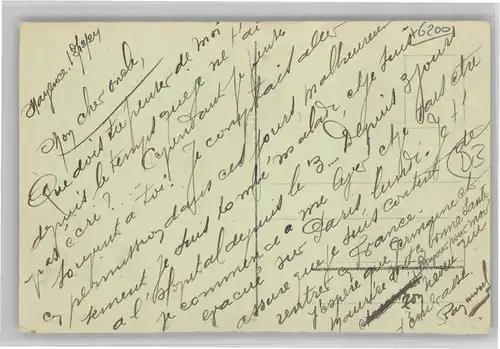 Mayence,
Mon cher oncle,
Que dois-tu penser de moi
depuis le temps que je ne t'ai
pas écri ? — Cependant je pense
souvent à toi. Je comptais aller
en permission dans ces jours, malheureu
tement je suis tombé malade, et je suis
à l'Hopital depuis le 3 — Depuis 3 jours
je commence à me lever, et je dois être
évacué sur Paris lundi. Je t'
assure que je suis content de
rentrer en France.
J'espère que Germaine et
Maurice sont en bonne santé
pour moi
Ton neveu qui
t'embrasse
Raymond
A6200
D3